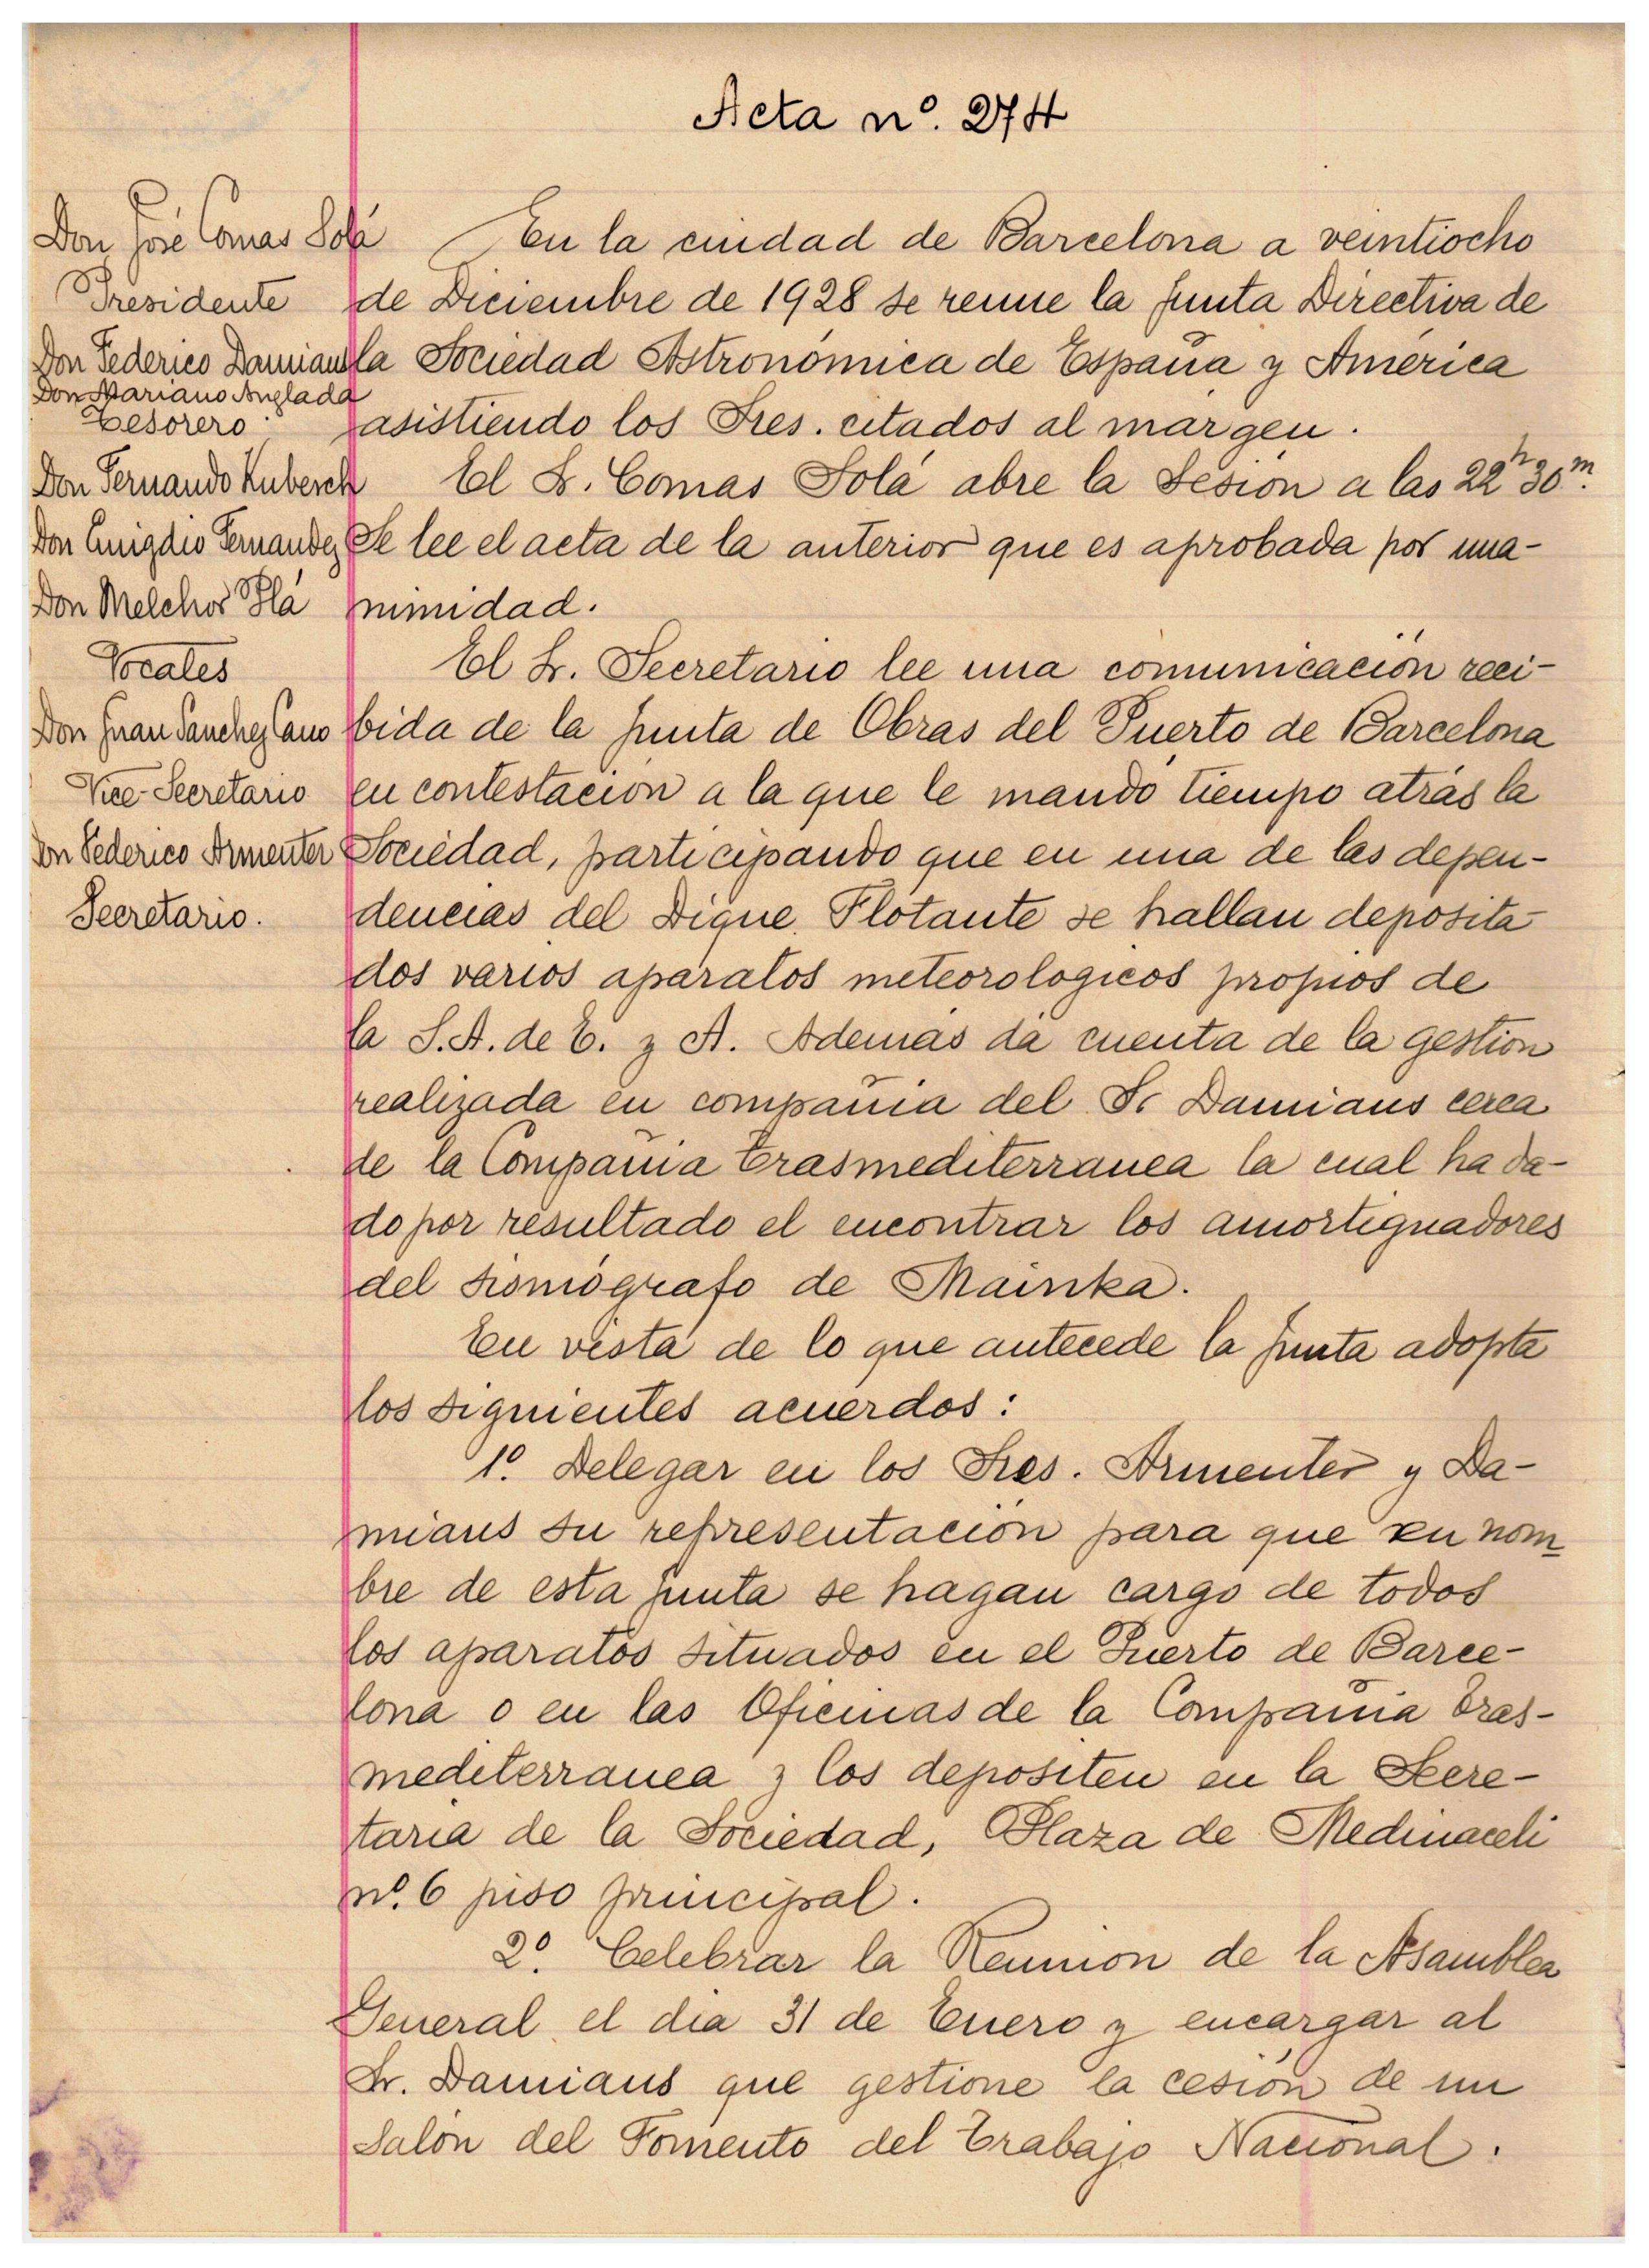 Acta nº. 274
Don José Comas Solá
Presidente
Don Federico Damians
Don Mariano Anglada
Tesorero
Don Fernando Kubesch
Don Emigdio Fernandez
Don Melchor Plá
Vocales
Don Juan Sanchez Cano
Vice-Secretario
Don Federico Armenter
Secretario.
En la ciudad de Barcelona a veintiocho
de Diciembre de 1928 se reune la Junta Directiva de
la Sociedad Astronómica de España y América
asistiendo los Sres. citados al margen.
El Sr. Comas Solá abre la Sesión a las 22h 30m.
Se lee el acta de la anterior que es aprobada por una-
nimidad.
El Sr. Secretario lee una comunicación reci-
bida de la Junta de Obras del Puerto de Barcelona
en contestación a la que le mandó tiempo atrás la
Sociedad, participando que en una de las depen-
dencias del Dique Flotante se hallan deposita-
dos varios aparatos meteorologicos propios de
la S.A. de E. y A. Además dá cuenta de la gestion
realizada en compañia del Sr Damians cerca
de la Compañia Trasmediterranea la cual ha da-
do por resultado el encontrar los amortiguadores
del sismógrafo de Mainka.
En vista de lo que antecede la Junta adopta
los siguientes acuerdos:
1º. Delegar en los Sres. Armenter y Da-
mians su representación para que en nom
bre de esta junta se hagan cargo de todos
los aparatos situados en el Puerto de Barce-
lona o en las Oficinas de la Compañia Tras-
mediterranea y los depositen en la Secre-
taria de la Sociedad, Plaza de Medinaceli
nº. 6 piso principal.
2º. Celebrar la Reunion de la Asamblea
General el dia 31 de Enero y encargar al
Sr. Damians que gestione la cesión de un
Salón del Fomento del Trabajo Nacional.